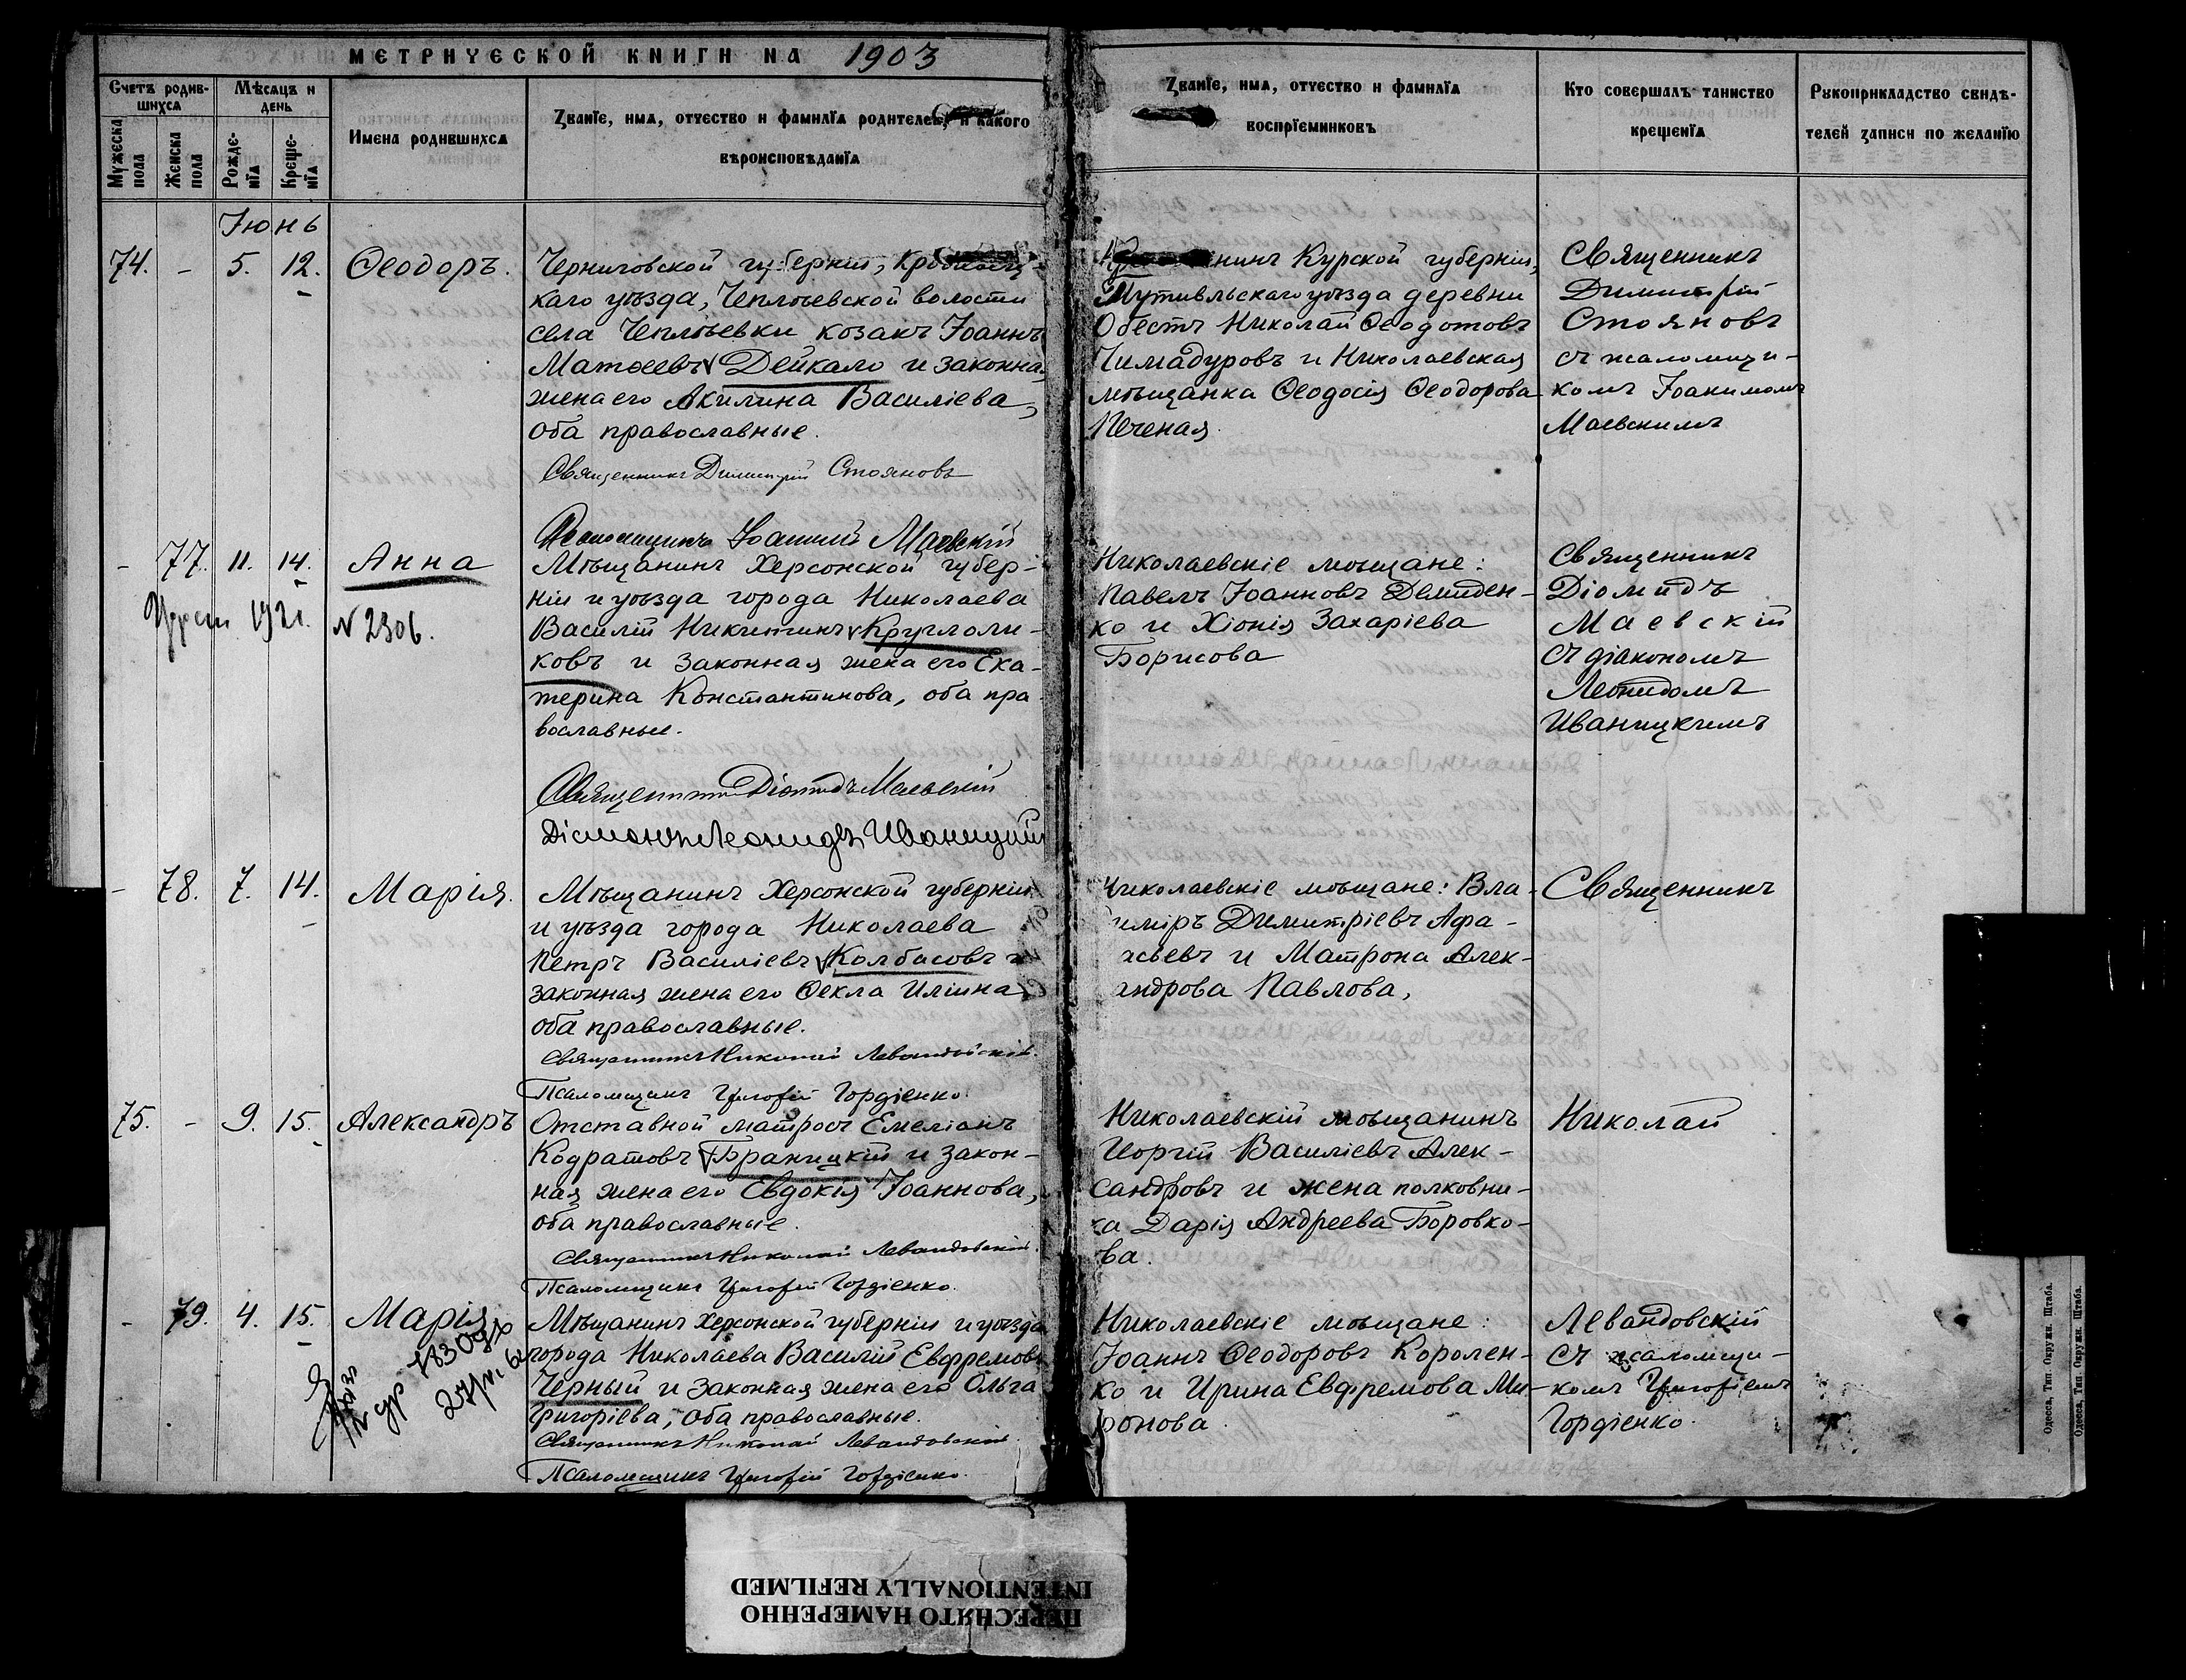 МЕТРИЧЕСКОЙ КНИГИ НА 1903
Счетъ родив-
шихся
Мѣсяцъ и
день
Имена родившихся
Званіе, имя, отчество и фамилія родителей, и какого
вѣроисповѣданія
Мужеска
пола
Женска
пола
Рожде-
нія
Креще-
нія
Званіе, имя, отчество и фамилія
воспріемниковъ
Кто совершалъ таинство
крещенія
Рукоприкладство свидѣ-
телей записи по желанію
Іюнь
74. - 5. 12. Ѳеодоръ.
Черниговской губерніи,
каго уѣзда, Чеплѣевской волости
села Чеплѣевки козакъ Іоаннъ
Матѳеевъ Дейкало и законная
жена его Акилина Василіева,
оба православные.
Священникъ Димитрій Стояновъ
Псаломщикъ Іоакимъ Маевскій
нинъ Курской губерніи,
Путивльскаго уѣзда деревни
Обестъ Николай Ѳеодотовъ
Чимадуровъ и Николаевская
мѣщанка Ѳеодосія Ѳеодорова
Печеная.
Священникъ
Димитрій
Стояновъ
съ псаломщи-
комъ Іоакимомъ
Маевскимъ
- 77. 11. 14. Анна
1921. N 2306.
Мѣщанинъ Херсонской губер-
ніи и уѣзда города Николаева
Василій Никитинъ Круглоли-
ковъ и законная жена его Ека-
терина Константинова, оба пра-
вославные.
Священникъ Діомидъ Маевскій
Діаконъ Леонидъ Иваницкій
Николаевскіе мѣщане:
Павелъ Іоанновъ Демиден-
ко и Хіонія Захаріева
Борисова
Священникъ
Діомидъ
Маевскій
съ діакономъ
Леонидомъ
Иваницкимъ
- 78. 7. 14. Марія.
Мѣщанинъ Херсонской губерніи
и уѣзда города Николаева
Петръ Василіевъ Колбасовъ и
законная жена его Ѳекла Иліина,
оба православные.
Священникъ Николай Левандовскій.
Псаломщикъ Григорій Гордіенко.
Николаевскіе мѣщане: Вла-
имiръ Димитріевъ Афа-
сьевъ и Матрона Алек-
андрова Павлова,
Священникъ
75. - 9. 15. Александръ
Отставной матросъ Емеліанъ
Кодратовъ Браницкій и закон-
ная жена его Евдокія Іоаннова,
оба православные.
Священникъ Николай Левандовскій.
Псаломщикъ Григорій Гордіенко.
Николаевскій мѣщанинъ
Георгій Василіевъ Алек-
сандровъ и жена полковни-
ка Дарія Андреева Боровко-
ва.
Николай
- 79. 4. 15. Марія
Мѣщанинъ Херсонской губерніи и уѣзда
города Николаева Василій Евфремовъ
Черный и законная жена его Ольга
Григоріева, оба православные.
Священникъ Николай Левандовскій.
Псаломщикъ Григорій Гордіенко.
Николаевскіе мѣщане:
Іоаннъ Ѳеодоровъ Королен-
ко и Ирина Евфремова Ми-
ронова.
Левандовскій
съ псаломщи-
комъ Григоріемъ
Гордіенко.
Одесса, Тип. Окружн. Штаба.
Одесса, Тип. Окружн. Штаба.
ПЕРЕСНЯТО НАМЕРЕННО
INTENTIONALLY REFILMED